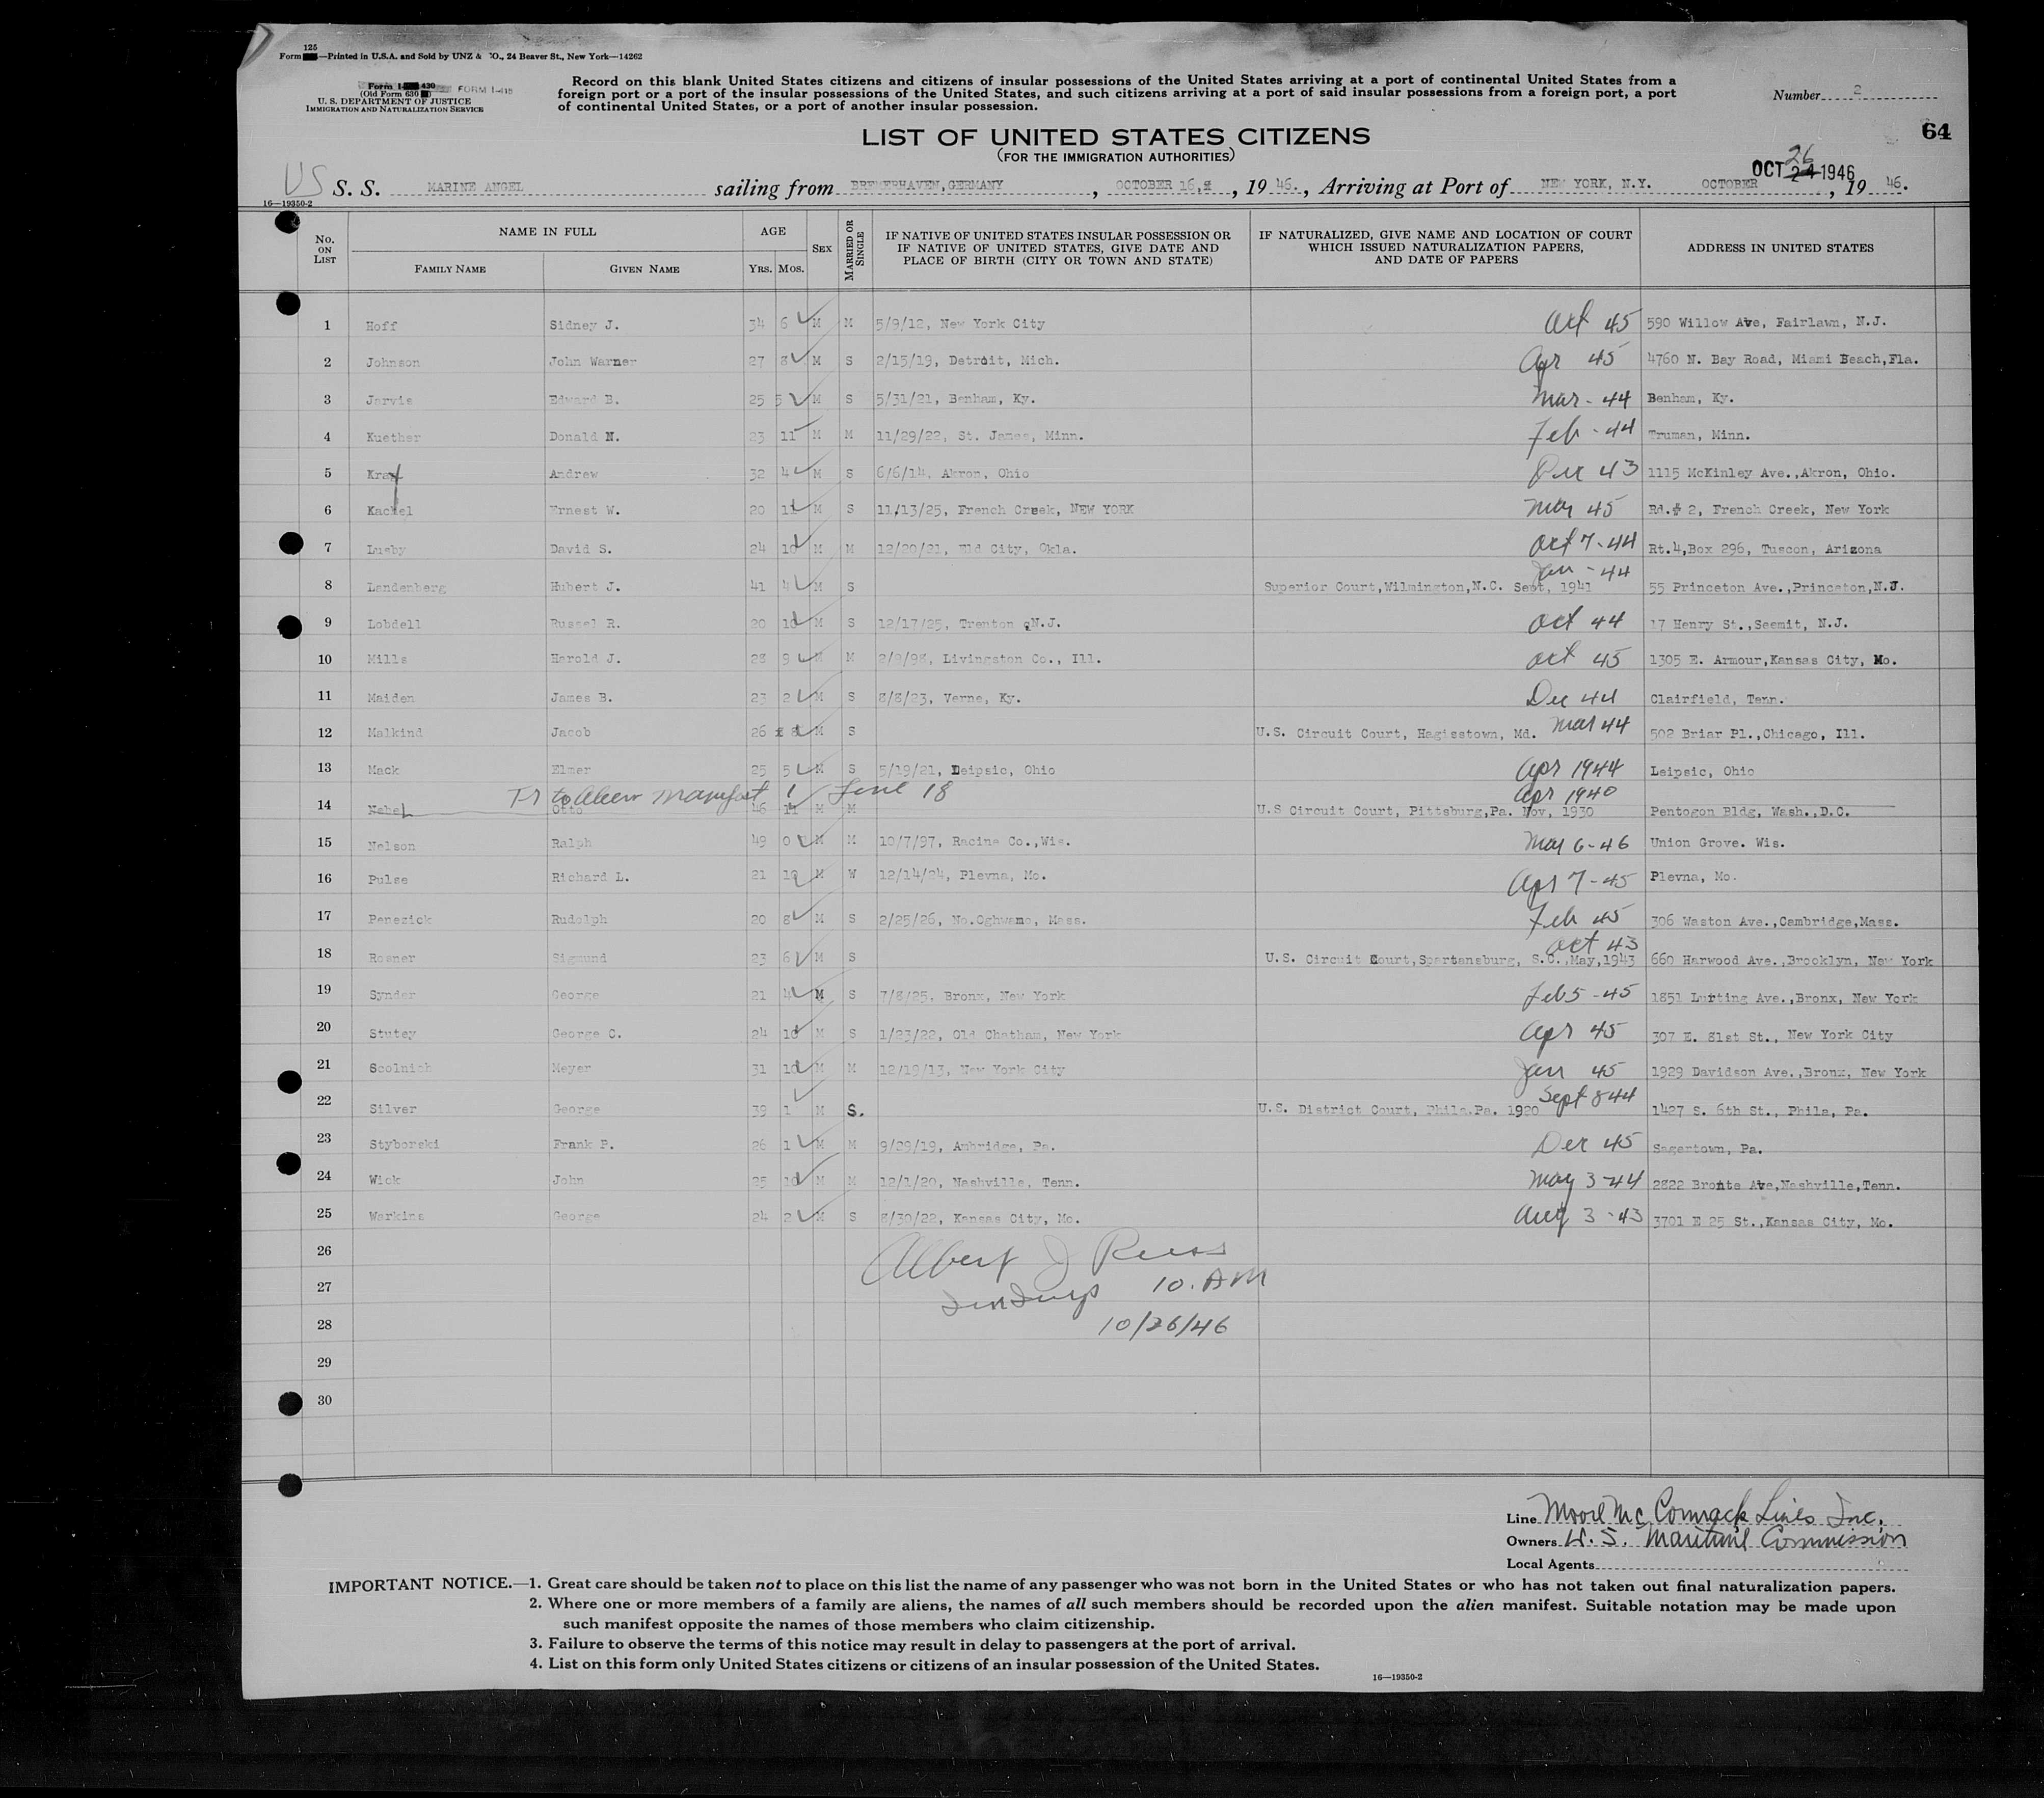 125
Form —Printed in U.S.A. and Sold by UNZ & CO., 24 Beaver St., New York—14262
Form I- 430 FORM I-418
(Old Form 630 )
U. S. DEPARTMENT OF JUSTICE
IMMIGRATION AND NATURALIZATION SERVICE
Record on this blank United States citizens and citizens of insular possessions of the United States arriving at a port of continental United States from a
foreign port or a port of the insular possessions of the United States, and such citizens arriving at a port of said insular possessions from a foreign port, a port
of continental United States, or a port of another insular possession.
Number 2
64
LIST OF UNITED STATES CITIZENS
(FOR THE IMMIGRATION AUTHORITIES)
26
OCT 24 1946
US S. S. MARINE ANGEL sailing from BREMERHAVEN,GERMANY, OCTOBER 16, 19 46., Arriving at Port of NEW YORK, N.Y. OCTOBER, 19 46.
16—19350-2
No. ON LIST NAME IN FULL FAMILY NAME GIVEN NAME AGE YRS. MOS. SEX MARRIED OR SINGLE IF NATIVE OF UNITED STATES INSULAR POSSESSION OR IF NATIVE OF UNITED STATES, GIVE DATE AND PLACE OF BIRTH (CITY OR TOWN AND STATE) IF NATURALIZED, GIVE NAME AND LOCATION OF COURT WHICH ISSUED NATURALIZATION PAPERS, AND DATE OF PAPERS ADDRESS IN UNITED STATES
1 Hoff Sidney J. 34 6 M M 5/9/12, New York City Oct 45 590 Willow Ave, Fairlawn, N.J.
2 Johnson John Warner 27 8 M S 2/15/19, Detroit, Mich. Apr 45 4760 N. Bay Road, Miami Beach,Fla.
3 Jarvis Edward B. 25 5 M S 5/31/21, Benham, Ky. Mar - 44 Benham, Ky.
4 Kuether Donald N. 23 11 M M 11/29/22, St. James, Minn. Feb - 44 Truman, Minn.
5 Andrew 32 4 M S 6/6/14, Akron, Ohio Dec 43 1115 McKinley Ave.,Akron, Ohio.
6 Kachel Ernest W. 20 11 M S 11/13/25, French Creek, NEW YORK May 45 Rd.# 2, French Creek, New York
7 Lusby David S. 24 10 M M 12/20/21, Eld City, Okla. Oct 7-44 Rt.4,Box 296, Tuscon, Arizona
Jan - 44
8 Landenberg Hubert J. 41 4 M S Superior Court,Wilmington,N.C. Sept, 1941 55 Princeton Ave.,Princeton,N.J.
9 Lobdell Russel R. 20 10 M S 12/17/25, Trenton N.J. Oct 44 17 Henry St.,Seemit, N.J.
10 Mills Harold J. 28 9 M M 2/9/98, Livingston Co., Ill. Oct 45 1305 E. Armour,Kansas City, Mo.
11 Maiden James B. 23 2 M S 8/8/23, Verne, Ky. Dec 44 Clairfield, Tenn.
12 Malkind Jacob 26 8 M S U.S. Circuit Court, Hagisstown, Md. Mar 44 502 Briar Pl.,Chicago, Ill.
13 Mack Elmer 25 5 M S 5/19/21, Leipsic, Ohio Apr 1944 Leipsic, Ohio
Tr to Alien Manifest 1 Line 18 Apr 1940
14 Otto 46 11 M M U.S Circuit Court, Pittsburg,Pa. Nov, 1930 Pentogon Bldg, Wash.,D.C.
15 Nelson Ralph 49 0 M M 10/7/97, Racine Co.,Wis. May 6-46 Union Grove. Wis.
16 Pulse Richard L. 21 10 M W 12/14/24, Plevna, Mo. Apr 7-45 Plevna, Mo.
17 Penezick Rudolph 20 8 M S 2/25/26, No.Oghwano, Mass. Feb 45 306 Waston Ave.,Cambridge,Mass.
Oct 43
18 Rosner Sigmund 23 6 M S U.S. Circuit Court,Spartansburg, S.C.,May,1943 660 Harwood Ave.,Brooklyn, New York
19 Synder George 21 4 M S 7/8/25, Bronx, New York Feb 5-45 1851 Lurting Ave.,Bronx, New York
20 Stutey George C. 24 10 M S 1/23/22, Old Chatham, New York Apr 45 307 E. 81st St., New York City
21 Scolnich Meyer 31 10 M M 12/19/13, New York City Jan 45 1929 Davidson Ave.,Bronx, New York
Sept 8 44
22 Silver George 39 1 M S. U.S. District Court, Phila,Pa. 1920 1427 S. 6th St., Phila, Pa.
23 Styborski Frank P. 26 1 M M 9/29/19, Ambridge, Pa. Dec 45 Sagertown, Pa.
24 Wick John 25 10 M M 12/1/20, Nashville, Tenn. May 3-44 2822 Bronte Ave,Nashville,Tenn.
25 Warkins George 24 2 M S 8/30/22, Kansas City, Mo. Aug 3-43 3701 E 25 St.,Kansas City, Mo.
26 Albert J
27 10. AM
28 10/26/46
29
30
Line Moore McCormack Lines Inc.
Owners U. S. Maritime Commission
Local Agents
IMPORTANT NOTICE.—1. Great care should be taken not to place on this list the name of any passenger who was not born in the United States or who has not taken out final naturalization papers.
2. Where one or more members of a family are aliens, the names of all such members should be recorded upon the alien manifest. Suitable notation may be made upon
such manifest opposite the names of those members who claim citizenship.
3. Failure to observe the terms of this notice may result in delay to passengers at the port of arrival.
4. List on this form only United States citizens or citizens of an insular possession of the United States.
16—19350-2